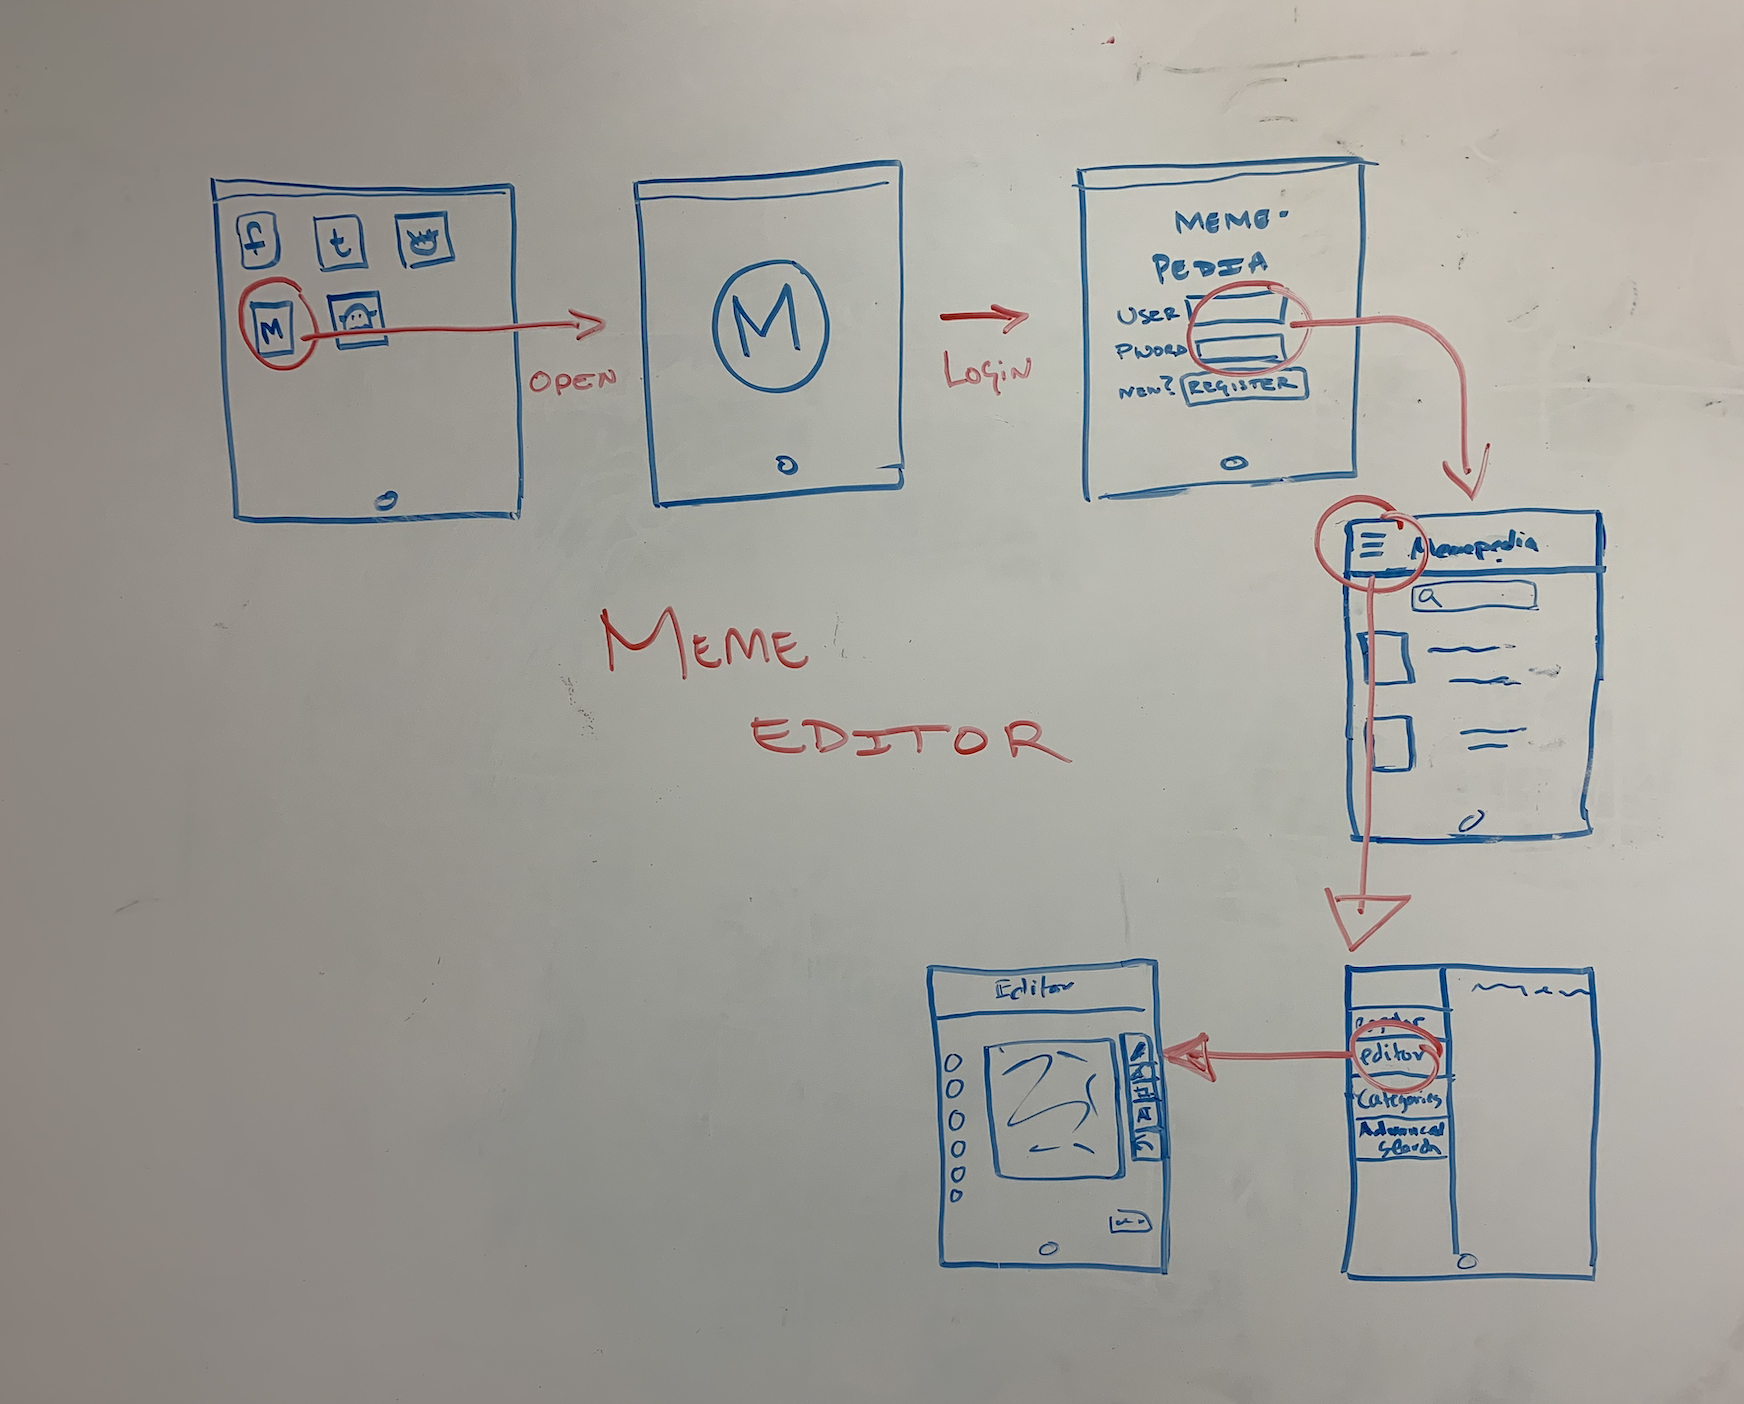 f t
M
OPEN
M
LOGIN
MEME-
PEDIA
USER
PWORD
NEW? REGISTER
Memepedia
MEME
EDITOR
Mem
editor
Categories
Advanced
Search
Editor